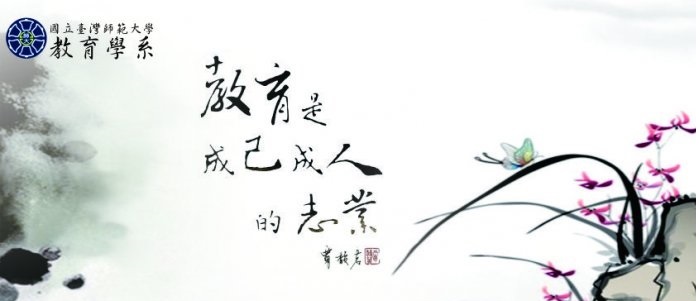 國立臺灣師範大學
教育學系
教育是
成己成人
的志業